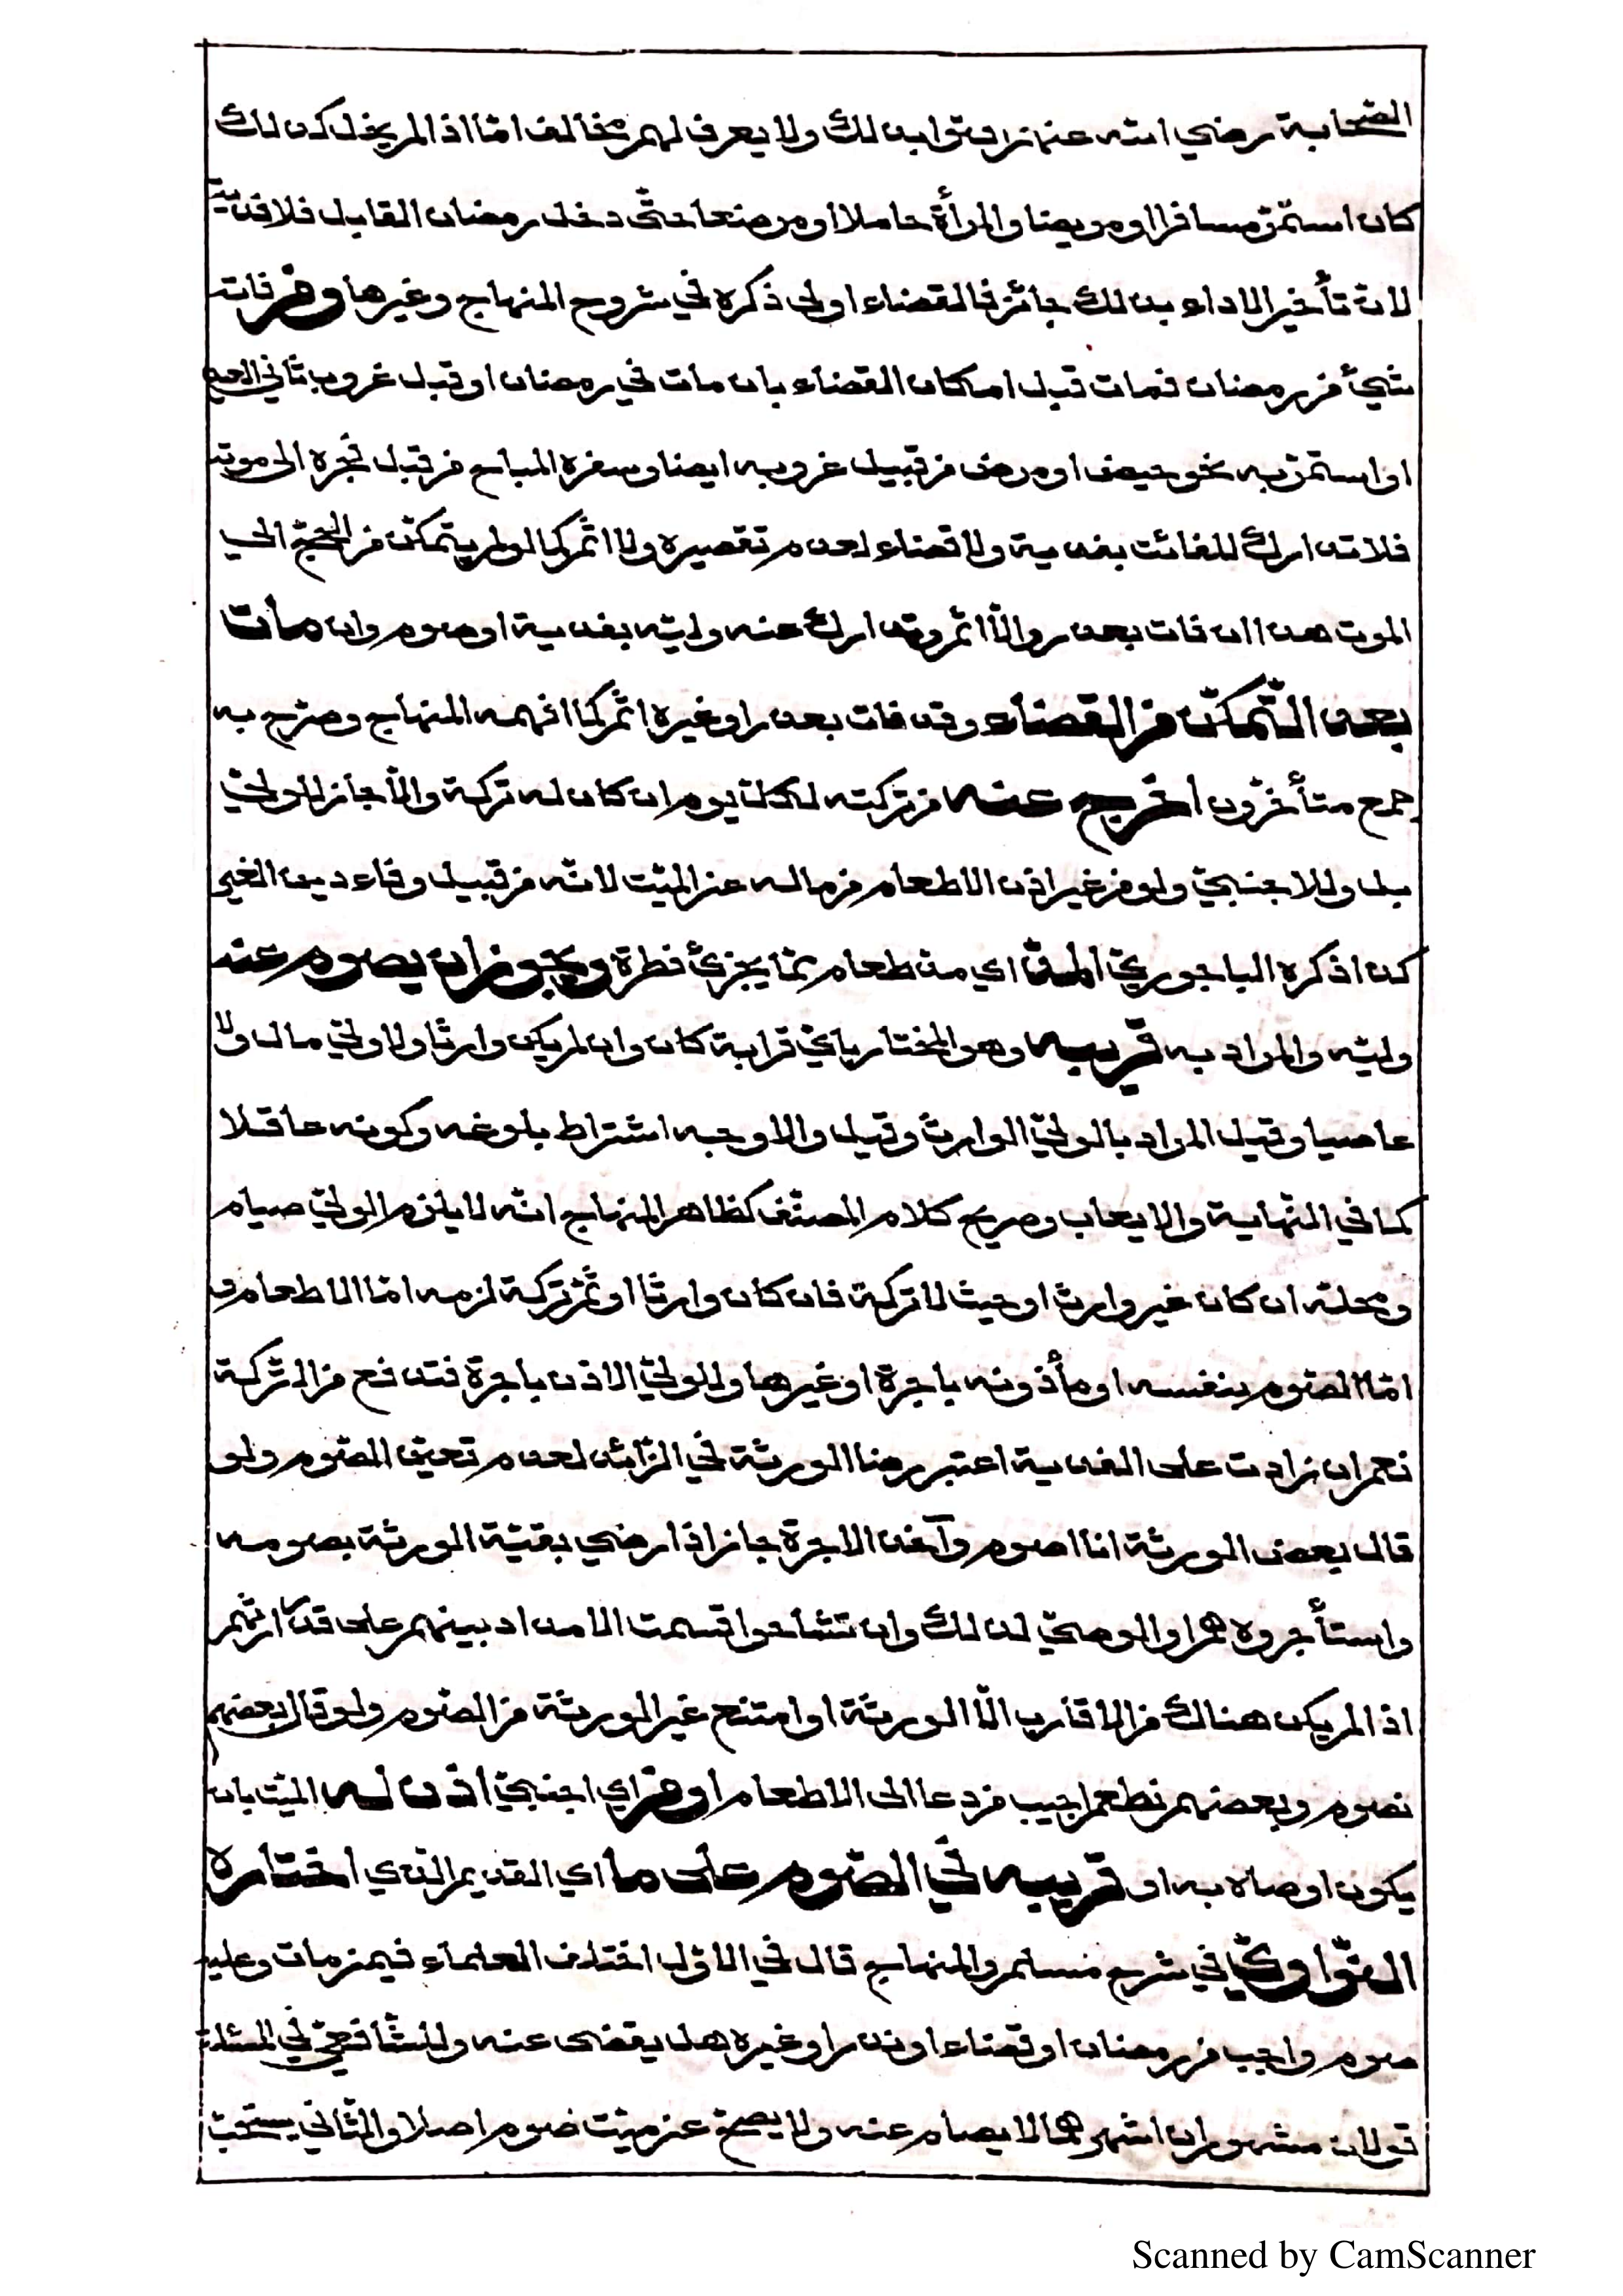 الصّحابة رضي الله عنهم افتوا بذلك ولا يعرف لهم مخالف امّا اذا لم يخل كذلك
كان استمرّ مسافرا او مريضا والمرأة حاملا او مرضعا حتّى دخل رمضان القابل فلا فدية
لانّ تأخير الاداء بذلك جائز فالقضاء اولى ذكره في شروح المنهاج وغيرها ومن فاته
شيئ من رمضان فمات قبل امكان القضاء بان مات في رمضان او قبل غروب ثاني العيد
او استمرّ به نحو حيض او مرض من قبيل غروبه ايضا وسفره المباح من قبل فجره الى موته
فلا تدارك للفائت بفدية ولا قضاء لعدم تقصيره ولا اثم كما لو لم يتمكّن من الحجّ الى
الموت هذا ان فات بعذر والّا اثم وتدارك عنه وليّه بفدية او صوم وان مات
بعد التّمكّن من القضاء وقد فات بعذر او غيره اثم كما افهمه المنهاج وصرّح به
جمع متأخّرون اخرج عنه من تركته لكلّ يوم ان كان له تركة والّا جاز للوليّ
بل وللاجنبيّ ولو من غير اذن الاطعام من ماله عن الميّت لانّه من قبيل وفاء دين الغير
كذا ذكره الباجوريّ المدّ اي مدّ طعام ممّا يجزئ فطرة ويجوز ان يصوم عنه
وليّه والمراد به قريبه وهو المختار بايّ قرابة كان وان لم يكن وارثا ولا وليّ مال ولا
عاصبا وقيل المراد بالوليّ الوارث وقيل والاوجه اشتراط بلوغه وكونه عاقلا
كما في النّهاية والايعاب وصريح كلام المصنّف كظاهر المنهاج انّه لا يلزم الوليّ صيام
ومحلّه ان كان غير وارث او حيث لا تركة فان كان وارثا او ثمّ تركة لزمه امّا الاطعام و
امّا الصّوم بنفسه او مأذونه باجرة او غيرها وللوليّ الاذن باجرة فتدفع من التّركة
نعم ان زادت على الفدية اعتبر رضا الورثة في الزّائد لعدم تعيّن الصّوم ولو
قال بعض الورثة انا اصوم وآخذ الاجرة جاز اذا رضي بقيّة الورثة بصومه
واستأجروه هم او الوصيّ لذلك وان تشاحوا قسمت الامداد بينهم على قدر ارثهم
اذا لم يكن هنالك من الاقارب الّا الورثة او امتنع غير الورثة من الصّوم ولو قال بعضهم
نصوم وبعضهم نطعم اجيب من دعا الى الاطعام او من اي اجنبيّ اذن له الميّت بان
يكون اوصاه به او قريبه في الصّوم على ما اي القديم الّذي اختاره
النّواويّ في شرح مسلم والمنهاج قال في الاوّل اختلف العلماء فيمن مات وعليه
صوم واجب من رمضان او قضاء او نذر او غيره هل يقضى عنه وللشّافعيّ في المسئلة
قولان مشهوران اشهرهما لا يصام عنه ولا يصحّ عن ميّت صوم اصلا والثّاني يستحبّ
Scanned by CamScanner